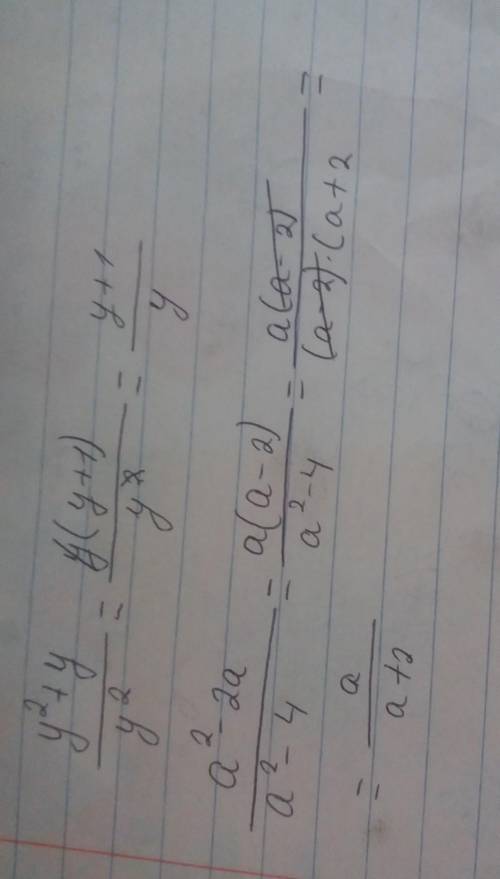 (y²+y)/y² = y(y+1)/y² = (y+1)/y
(a²-2a)/(a²-4) = a(a-2)/(a²-4) = a(a-2)/(a-2)·(a+2 =
= a/(a+2)